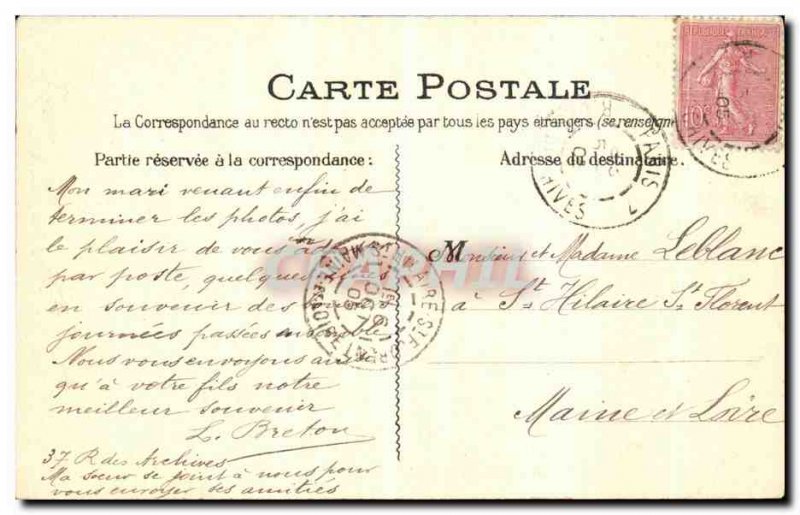 CARTE POSTALE
La Correspondance au recto n'est pas acceptée par tous les pays étrangers (se renseigner
Partie réservée à la correspondance :
Adresse du destinataire.
Mon mari venant enfin de
terminer les photos, j'ai
le plaisir de vous
par poste, quelques
en souvenir des
journées passées ensemble
Nous vous envoyons ainsi
qu'à votre fils notre
meilleur souvenir
L. Breton
37 R des Archives
Ma soeur se joint à nous pour
vous envoyer ses amitiés
Monsieur et Madame Leblanc
à St Hilaire St Florent
Maine et Loire
REPUBLIQUE FRANÇAISE
10c
PARIS
ARCHIVES
ST HILAIRE ST FLORENT
MAINE ET LOIRE